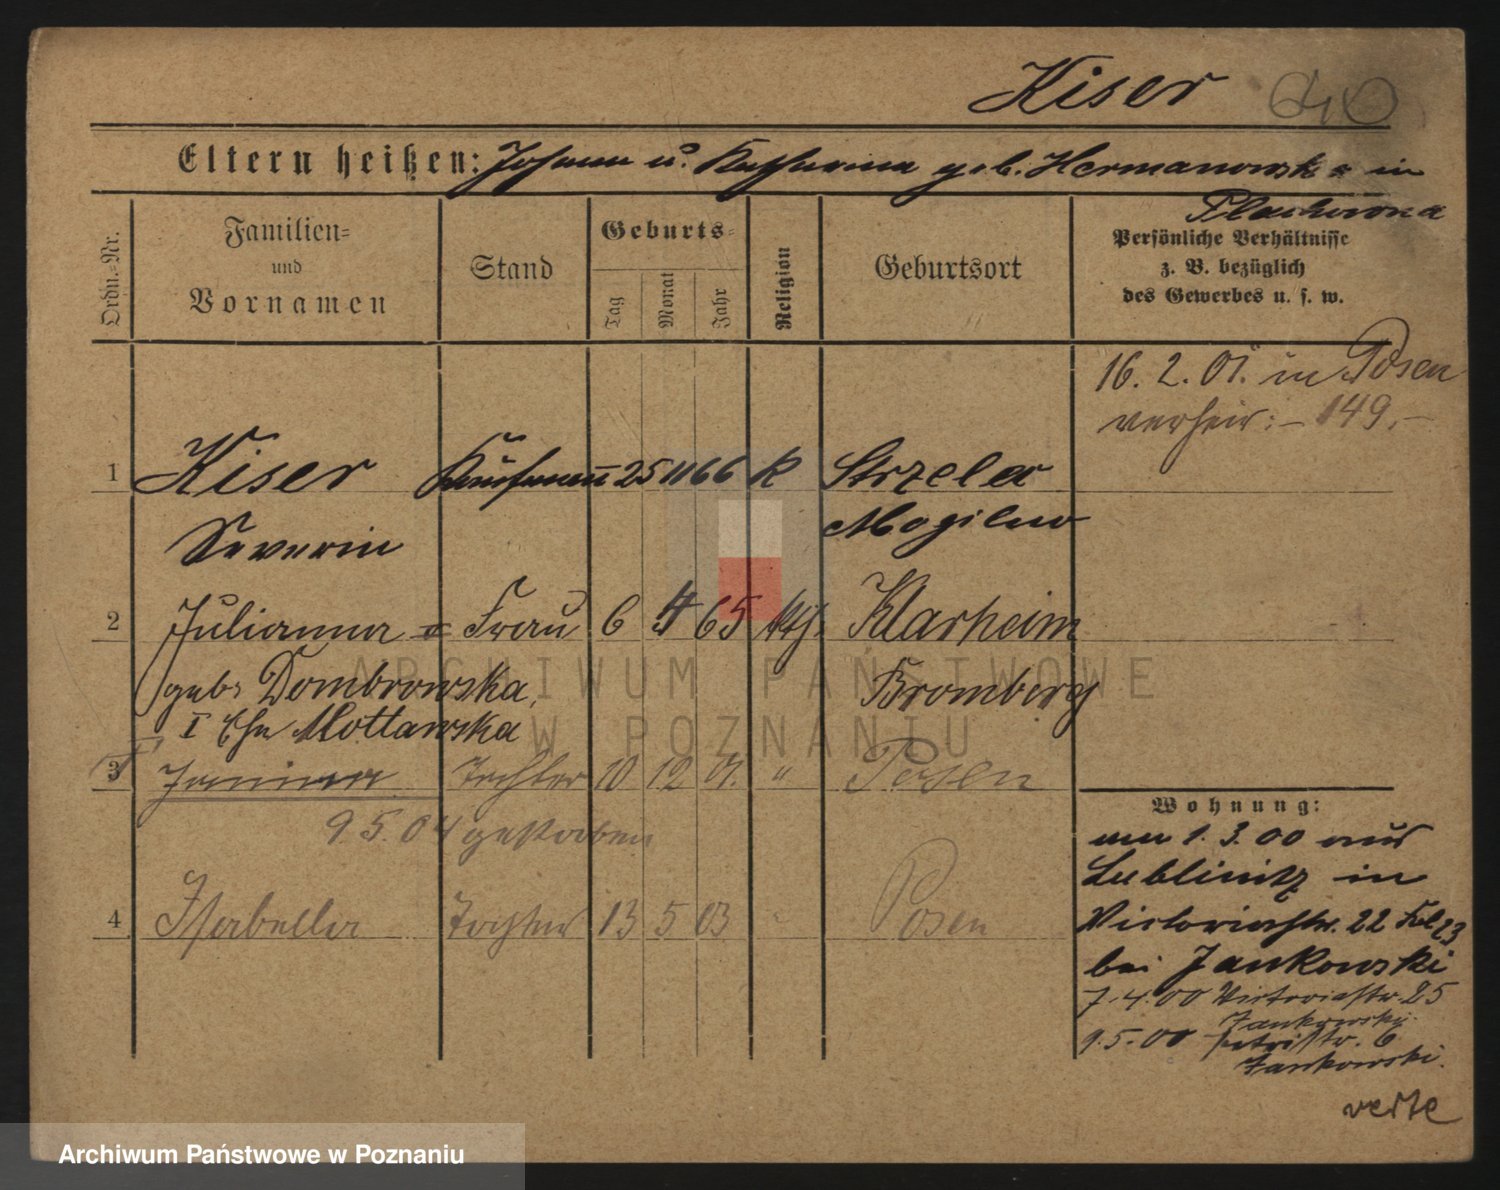 Kiser
Eltern heißen: Johann u. Katharina geb. Hermanowska in
Plachowna
Ordn.=Nr.
Familien=
und
Vornamen
Stand
Geburts=
Tag
Monat
Jahr
Religion
Geburtsort
Persönliche Verhältnisse
z. B. bezüglich
des Gewerbes u. s. w.
16. 2. 01. in Posen
verheir: – 149. –
1 Kiser Kaufmann 25 11 66 K Strzelce
Severin Mogilno
2 Julianna Frau 6 4 65 kth. Klarheim
geb. Dombrowska, Bromberg
I Ehe Mottawska
3 Janina Tochter 10 12 01. " Posen
9. 5. 04 gestorben
4 Isabella Tochter 13 5 03 " Posen
Wohnung:
am 1. 3. 00 aus
Lublinitz in
Victoriastr. 22 Fol 23
bei Jankowski
7. 4. 00 Victoriastr. 25
Jankowski.
9. 5. 00 Petristr. 6
Jankowski.
verte
ARCHIWUM PAŃSTWOWE
W POZNANIU
Archiwum Państwowe w Poznaniu